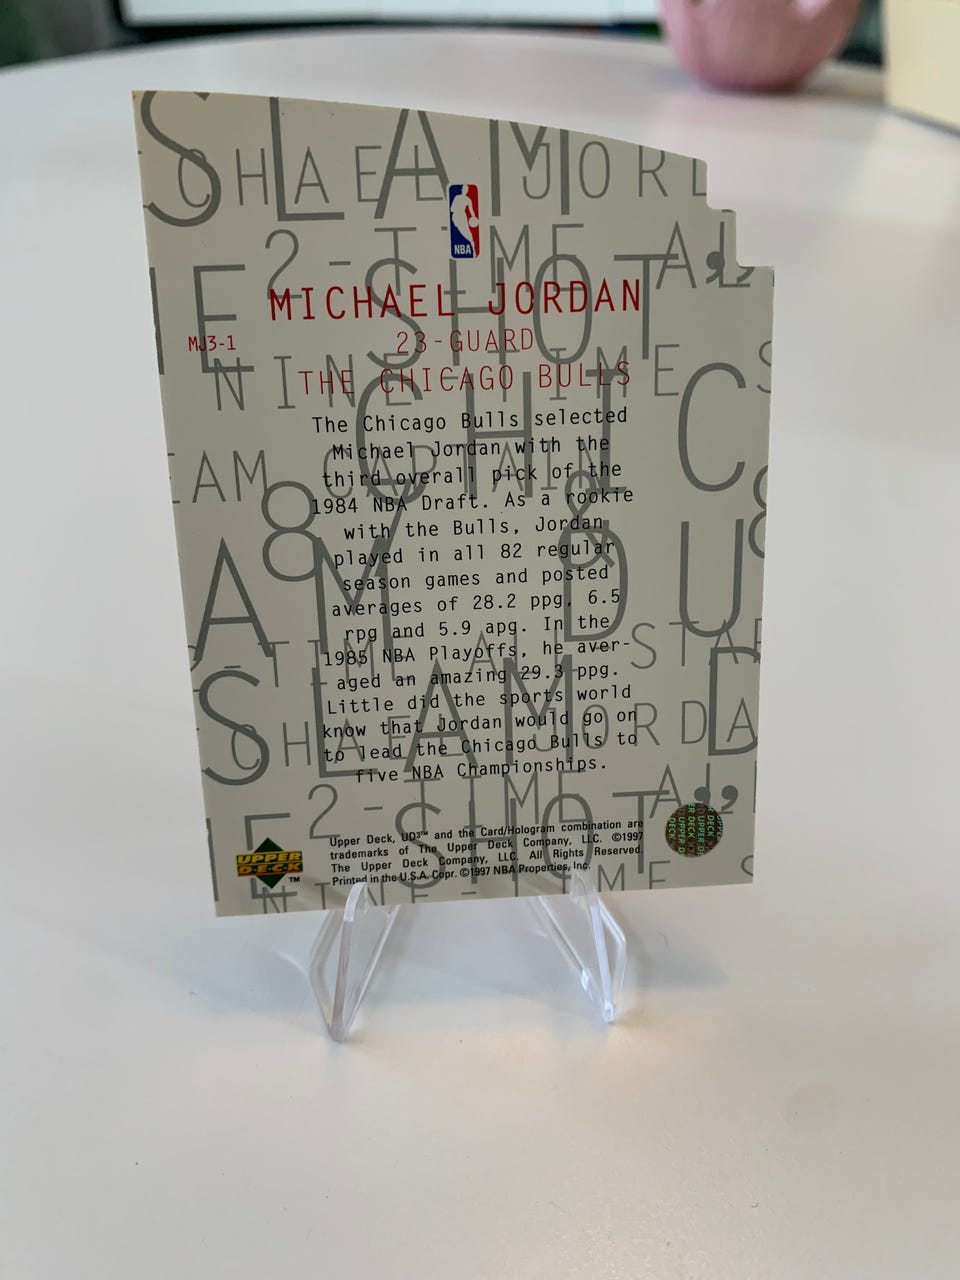 NBA
MICHAEL JORDAN
MJ3-1
23-GUARD
THE CHICAGO BULLS
The Chicago Bulls selected
Michael Jordan with the
third overall pick of the
1984 NBA Draft. As a rookie
with the Bulls, Jordan
played in all 82 regular
season games and posted
averages of 28.2 ppg, 6.5
rpg and 5.9 apg. In the
1985 NBA Playoffs, he aver-
aged an amazing 29.3 ppg.
Little did the sports world
know that Jordan would go on
to lead the Chicago Bulls to
five NBA Championships.
Upper Deck, UD3™ and the Card/Hologram combination are
trademarks of The Upper Deck Company, LLC. ©1997
The Upper Deck Company, LLC. All Rights Reserved.
Printed in the U.S.A. Copr. ©1997 NBA Properties, Inc.
UPPER
DECK
TM